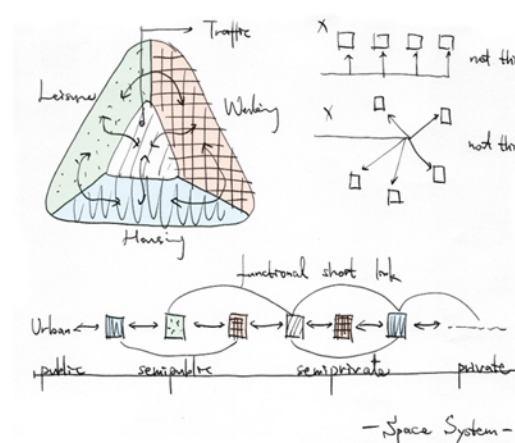 Traffic
Leisure
Working
Housing
X
not thi
X
not thi
functional short link
Urban
public
semipublic
semiprivate
private
- Space System -